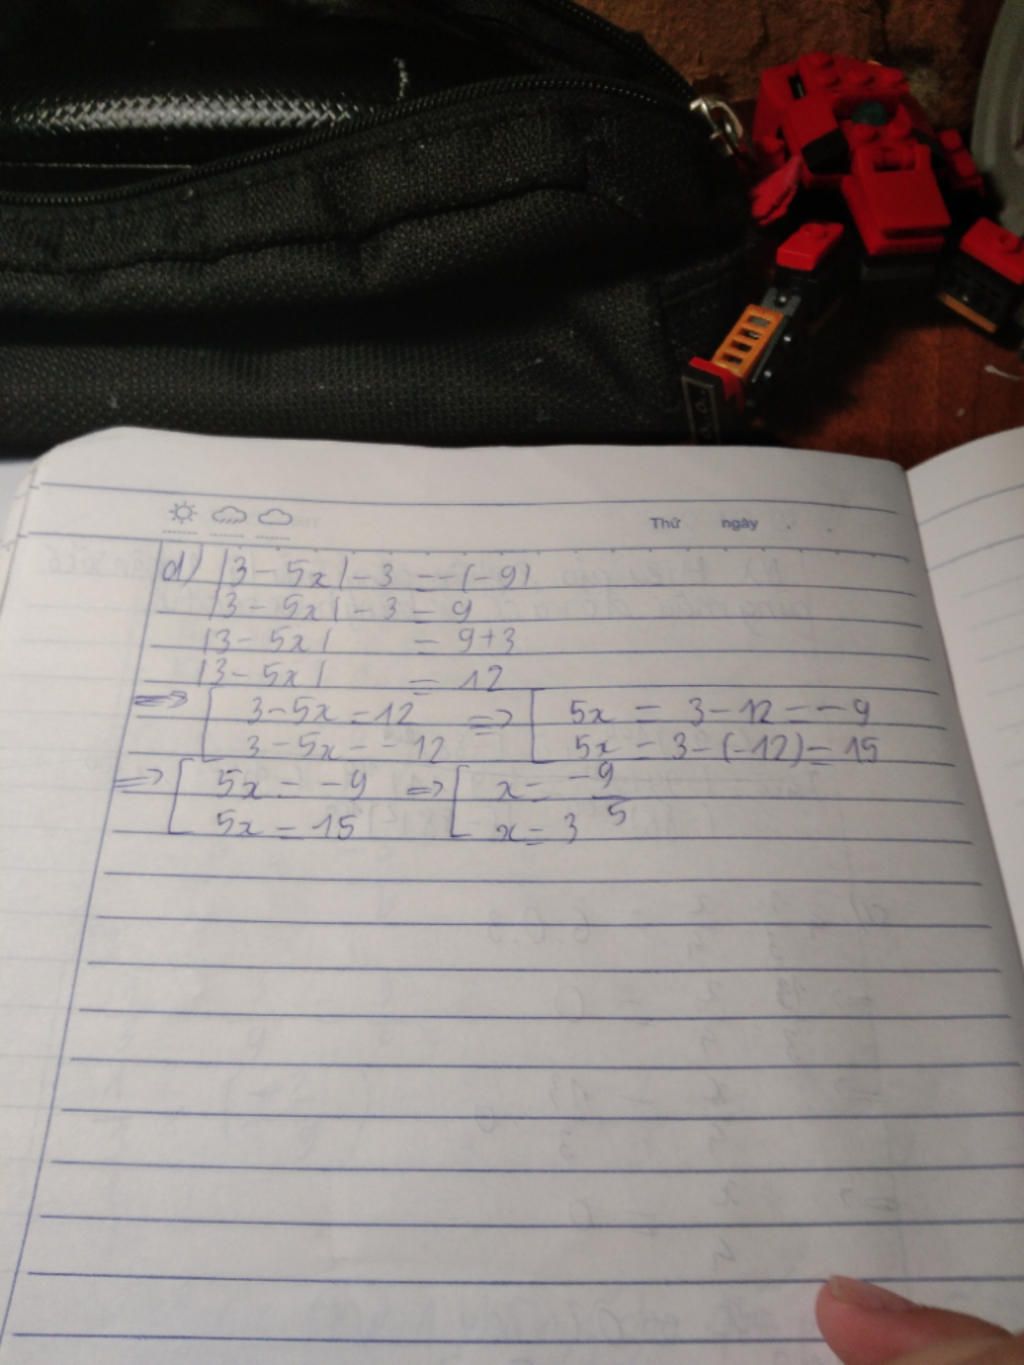 Thứ ngày
d) |3 - 5x| - 3 = -(-9)
|3 - 5x| - 3 = 9
|3 - 5x| = 9+3
|3 - 5x| = 12
=> [ 3 - 5x = 12 => [ 5x = 3 - 12 = -9
3 - 5x = -12 5x = 3 - (-12) = 15
=> [ 5x = -9 => [ x = -9/5
5x = 15 x = 3